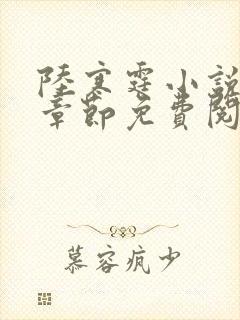 陸寒霆小說
章節免費閱
慕容疯少